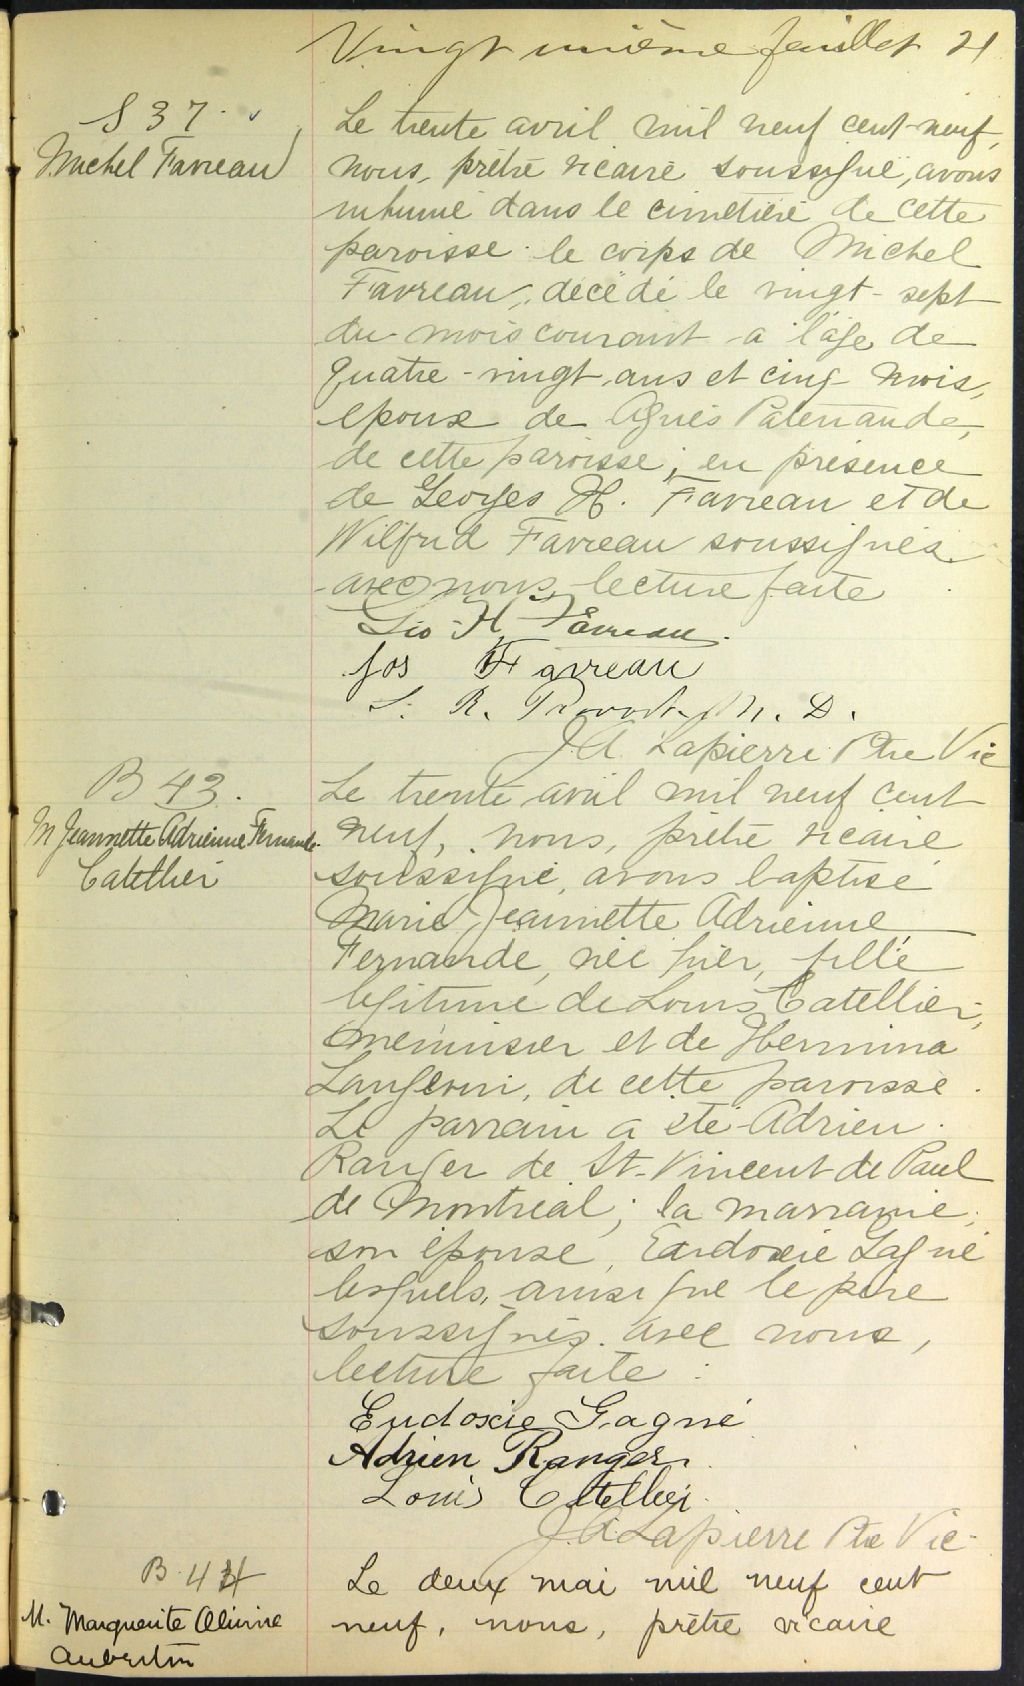 Vingt unième feuillet 21
S 37.
Michel Favreau
Le trente avril mil neuf cent-neuf,
nous, prêtre vicaire soussigné, avons
inhumé dans le cimetière de cette
paroisse le corps de Michel
Favreau, décédé le vingt-sept
du mois courant à l'âge de
quatre-vingt ans et cinq mois,
époux de Agnès Patenaude,
de cette paroisse; en présence
de Georges H. Favreau et de
Wilfrid Favreau soussignés
avec nous, lecture faite
Geo H. Favreau.
Jos Favreau
L. R. Provost M. D.
J. A Lapierre Ptre Vic
B 43.
M Jeannette Adrienne Fernande
Catellier
Le trente avril mil neuf cent
neuf, nous, prêtre vicaire
soussigné, avons baptisé
Marie Jeannette Adrienne
Fernande, née hier, fille
légitime de Louis Catellier,
menuisier et de Hermina
Langevin, de cette paroisse.
Le parrain a été Adrien
Ranger de St-Vincent de Paul
de Montréal; la marraine,
son épouse, Eudoxie Gagné
lesquels, ainsi que le père
soussignés avec nous,
lecture faite:
Eudoxie Gagné
Adrien Ranger
Louis Catellier
J. A. Lapierre Ptre Vic.
B. 44
M. Marguerite
Aubertin
Le deux mai mil neuf cent
neuf, nous, prêtre vicaire